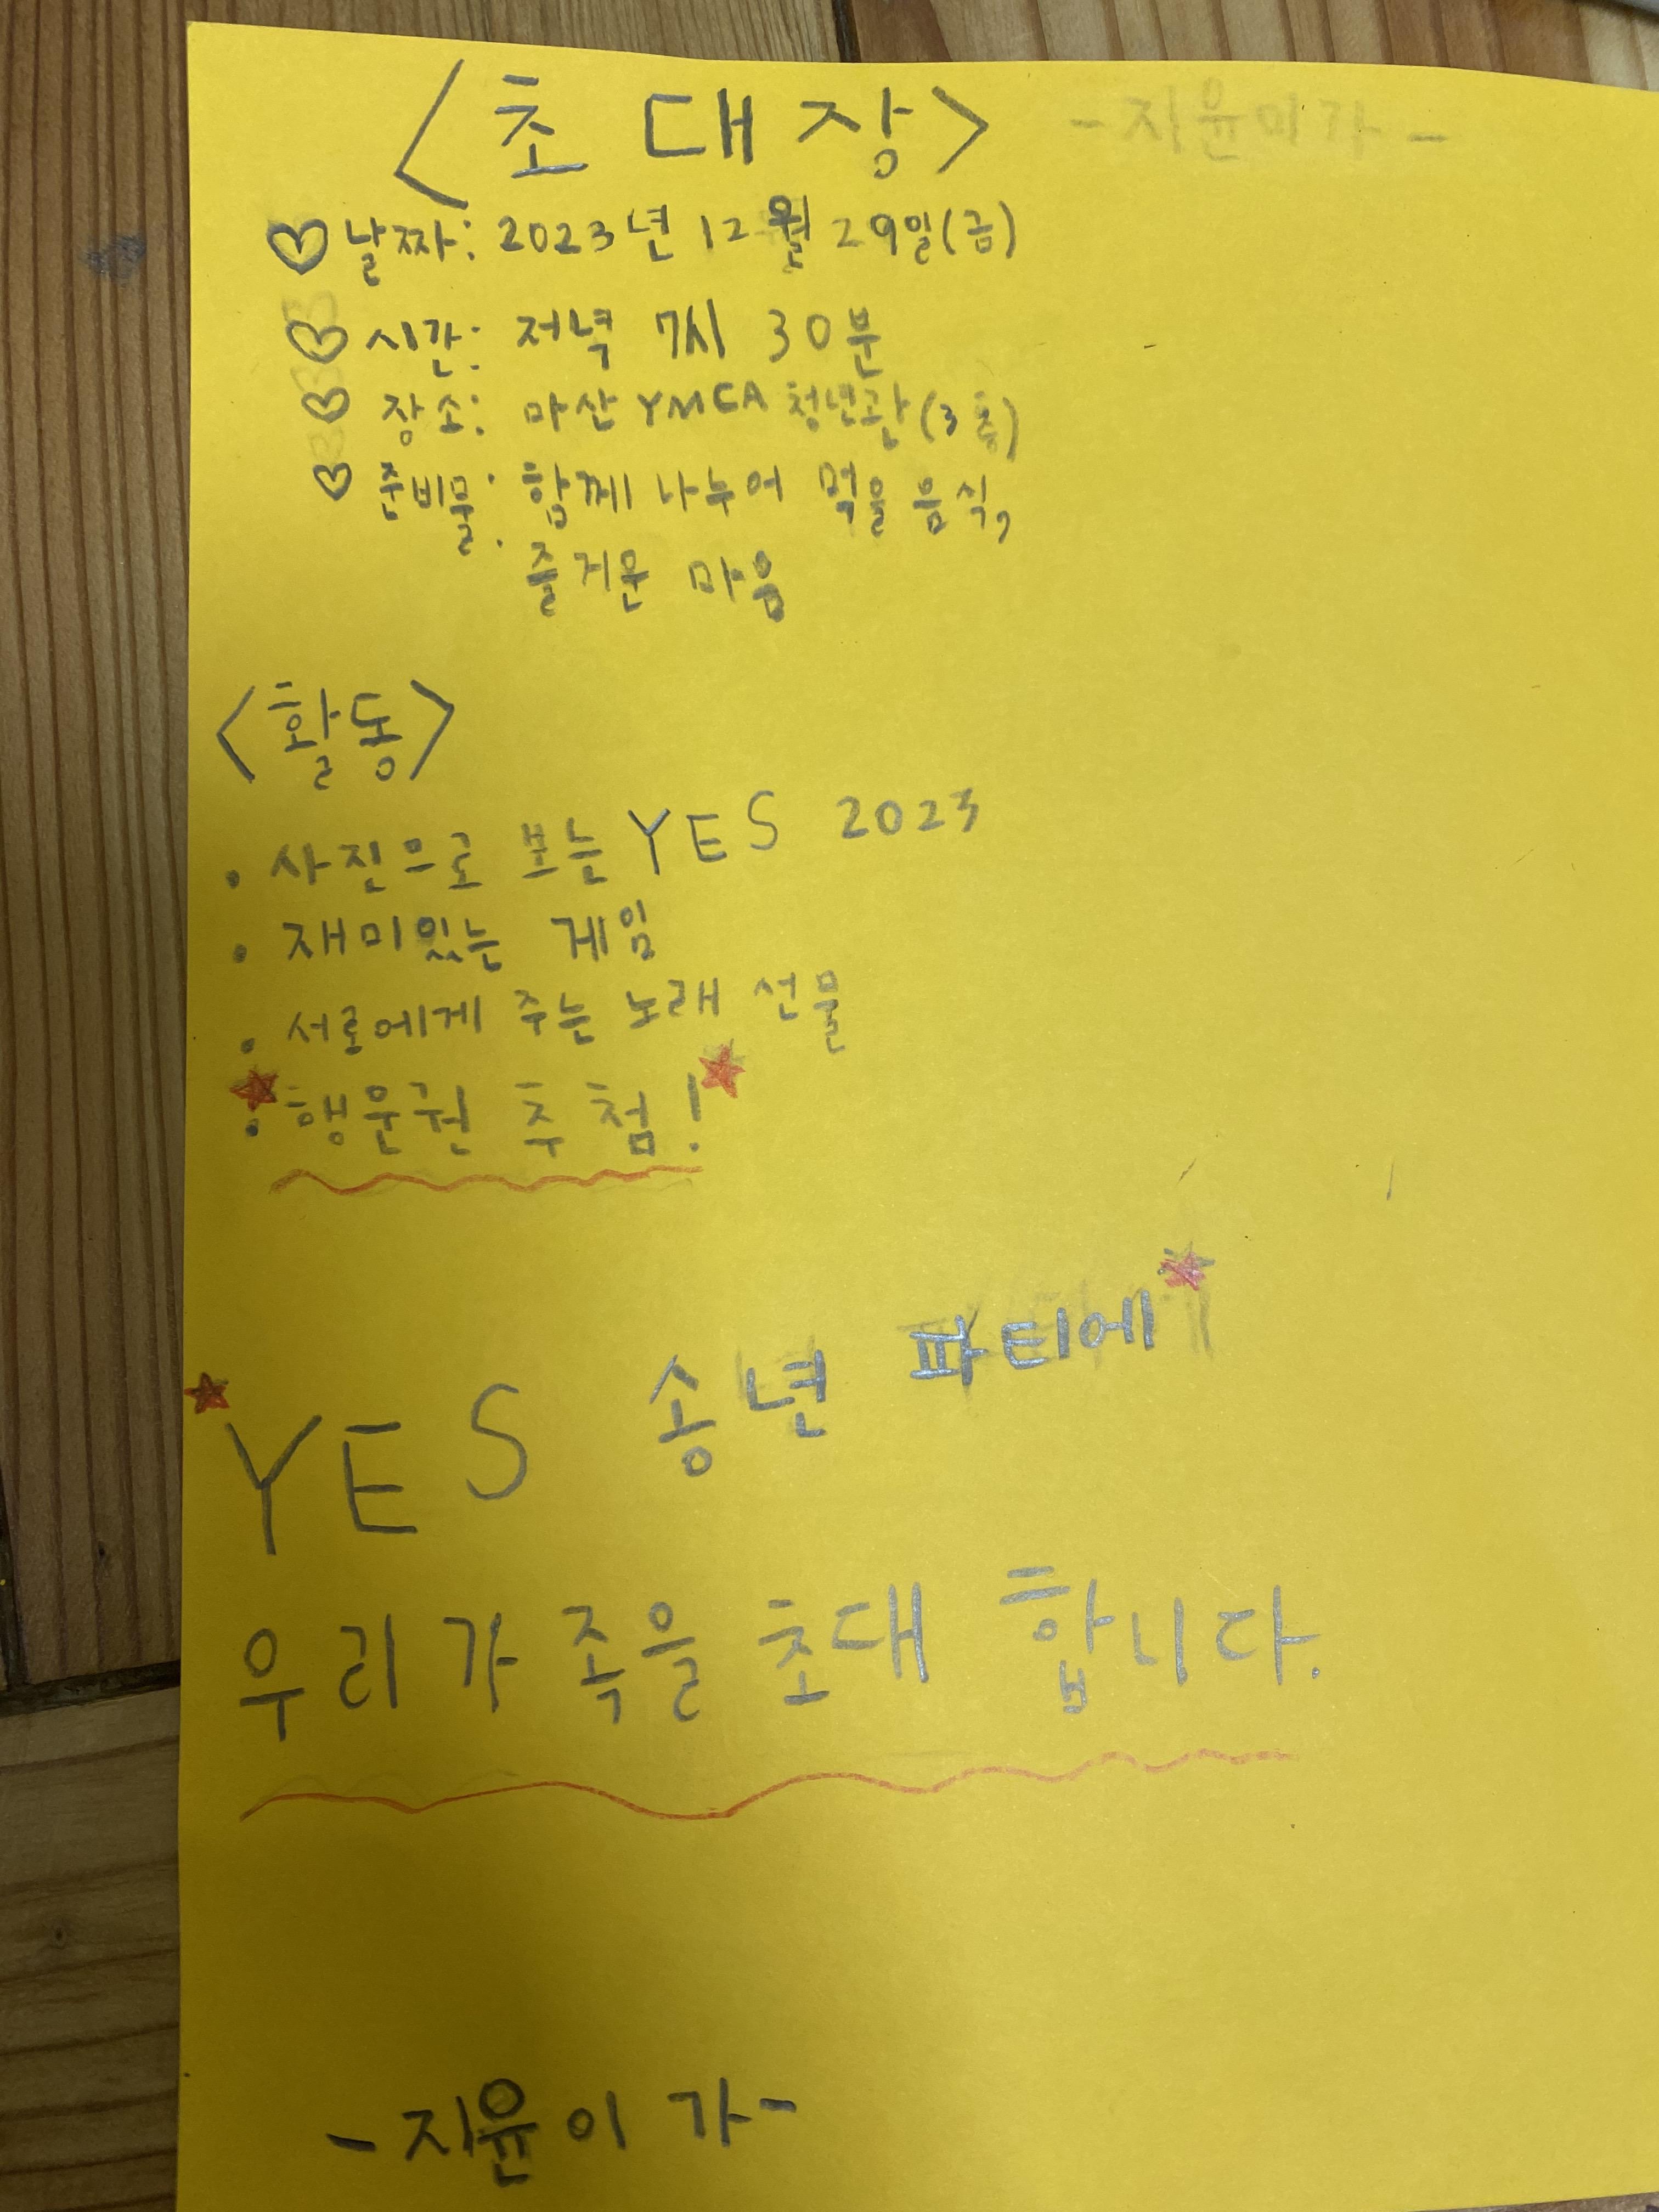 <초대장> -지윤이가-
♡날짜: 2023년 12월 29일(금)
♡시간: 저녁 7시 30분
♡장소: 마산 YMCA 청년관(3층)
♡준비물: 함께 나누어 먹을 음식,
즐거운 마음
<활동>
• 사진으로 보는 YES 2023
• 재미있는 게임
• 서로에게 주는 노래 선물
• 행운권 추첨!
YES 송년 파티에
우리가족을 초대 합니다.
-지윤이가-